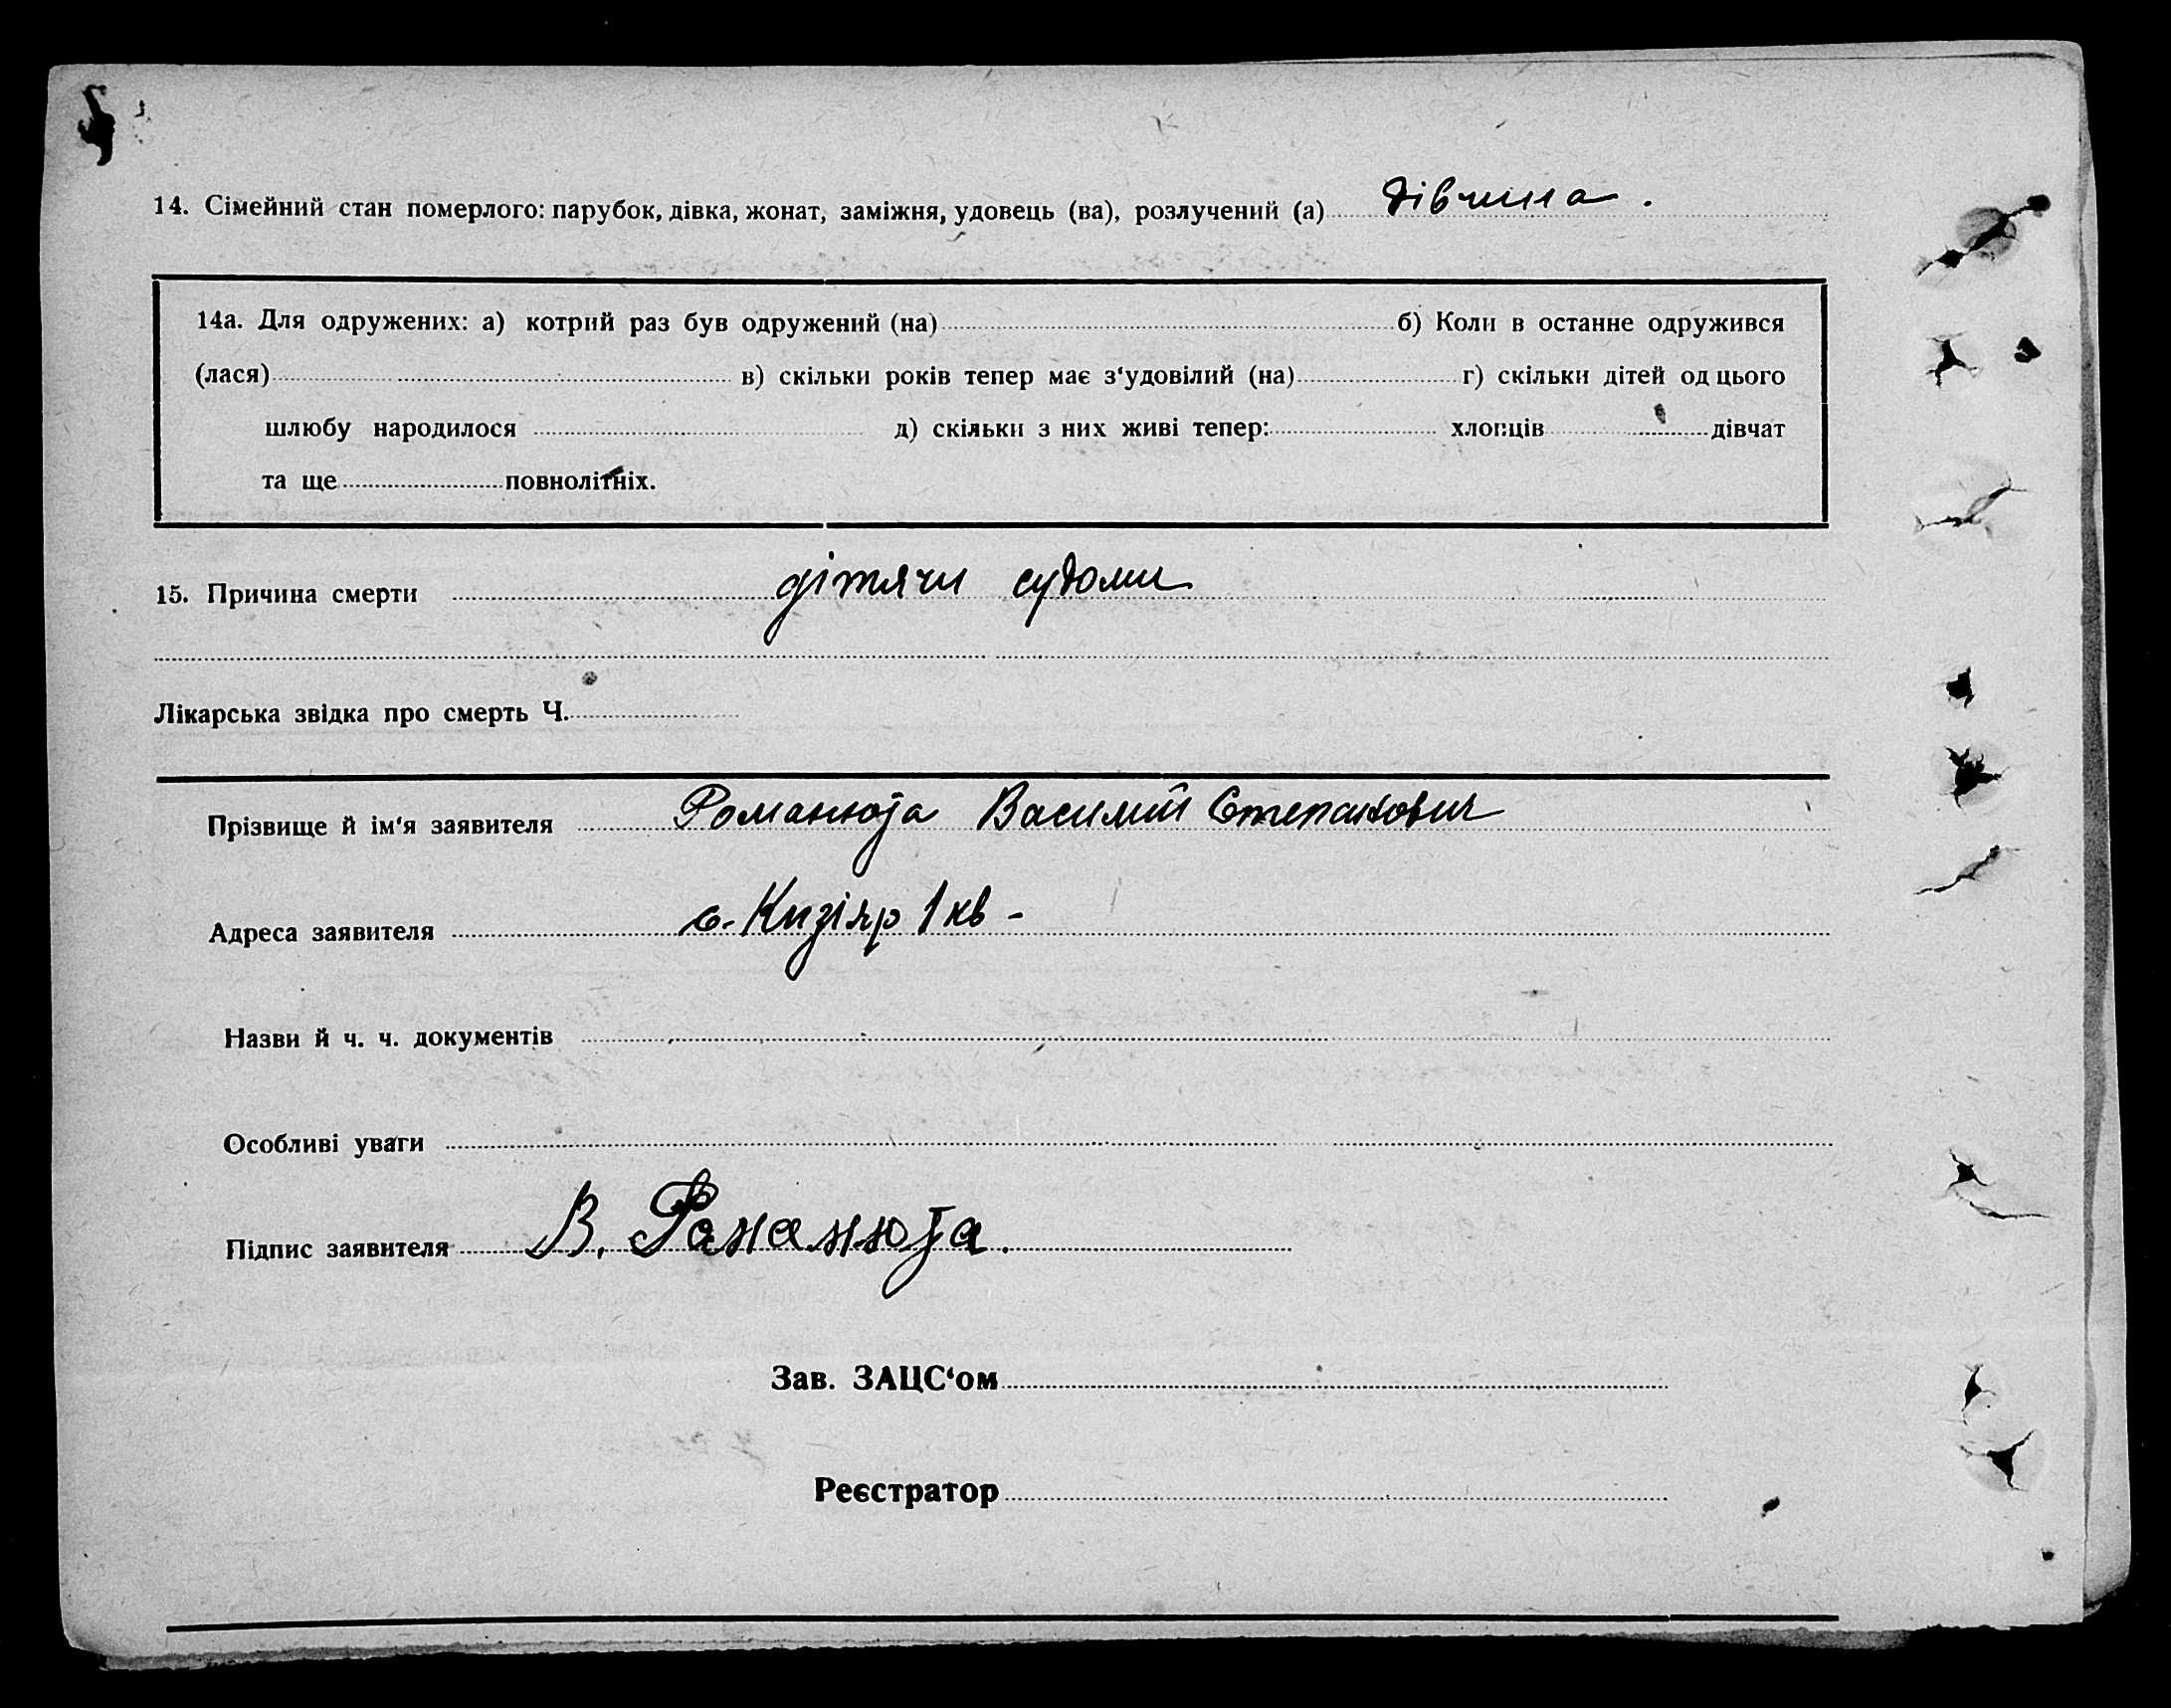 14. Сімейний стан померлого: парубок, дівка, жонат, заміжня, удовець (ва), розлучений (а) дівчина.
14а. Для одружених: а) котрий раз був одружений (на) б) Коли в останне одружився
(лася) в) скільки років тепер має з‘удовілий (на) г) скільки дітей од цього
шлюбу народилося д) скільки з них живі тепер: хлопців дівчат
та ще повнолітніх.
15. Причина смерти дітячи судоми
Лікарська звідка про смерть Ч.
Прізвище й ім‘я заявителя Романюта Василий Степанович
Адреса заявителя с. Кизіяр 1 кв -
Назви й ч. ч. документів
Особливі уваги
Підпис заявителя В. Романюта.
Зав. ЗАЦС‘ом
Реєстратор